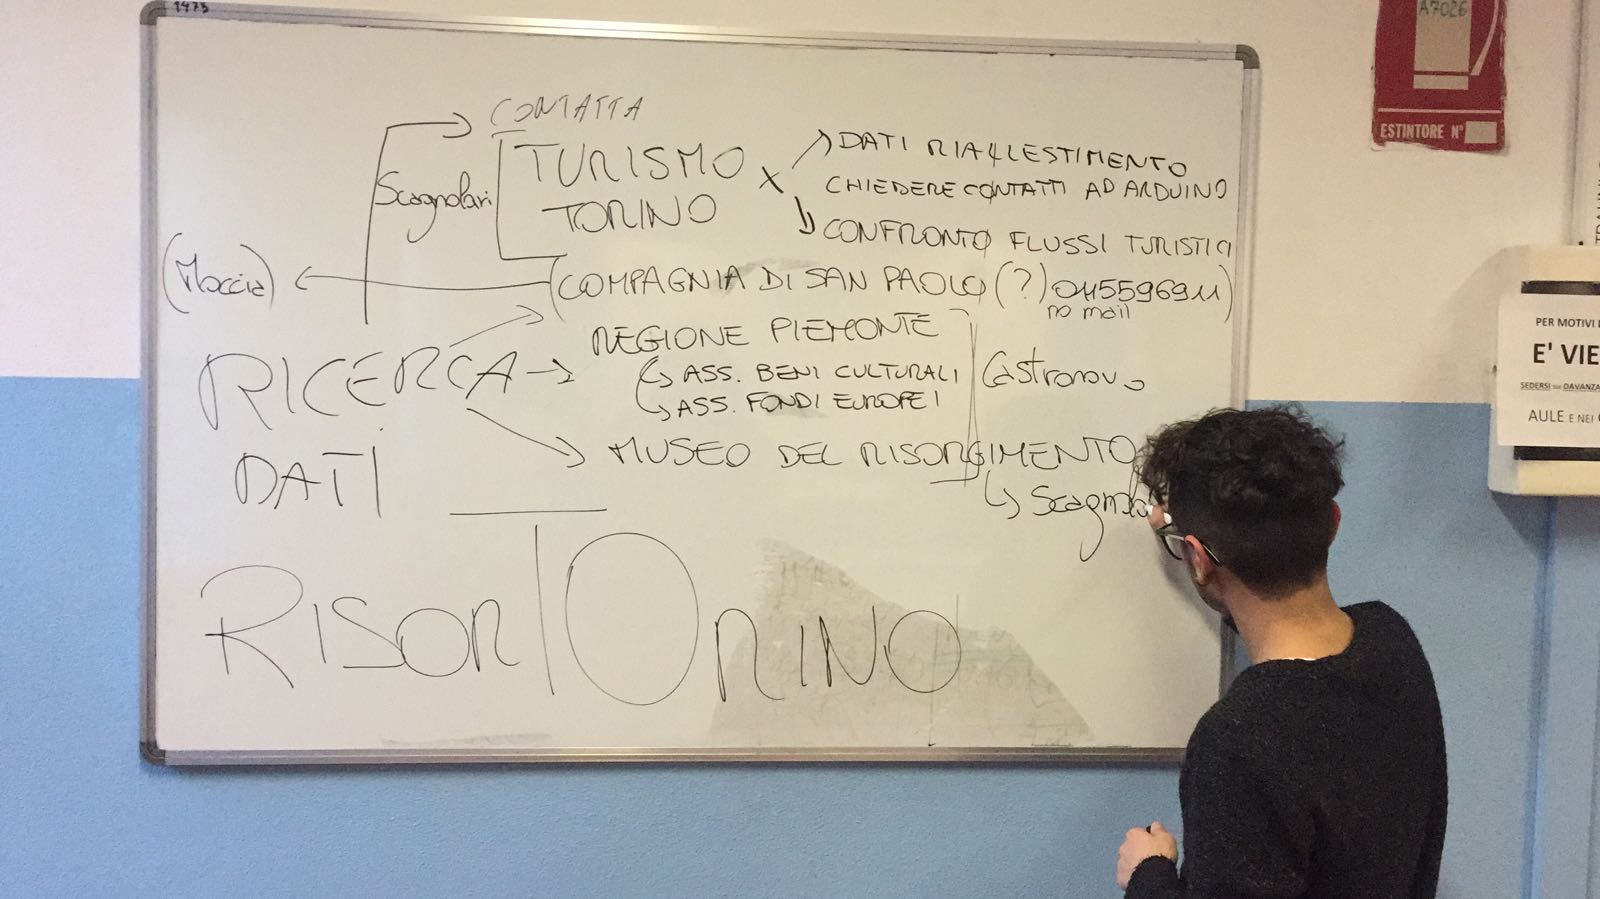 1473
A7026
ESTINTORE N°
CONTATTA
Scagnolari
TURISMO
TORINO
x
DATI RIALLESTIMENTO
CHIEDERE CONTATTI AD ARDUINO
CONFRONTO FLUSSI TURISTICI
(Moccia)
(COMPAGNIA DI SAN PAOLO (?) 0115596911)
no mail
RICERCA
DATI
REGIONE PIEMONTE
ASS. BENI CULTURALI
ASS. FONDI EUROPEI
Castronovo
MUSEO DEL RISORGIMENTO
Scagnola
RISORTORINO
PER MOTIVI
E' VIE
SEDERSI SUI DAVANZA
AULE E NEI